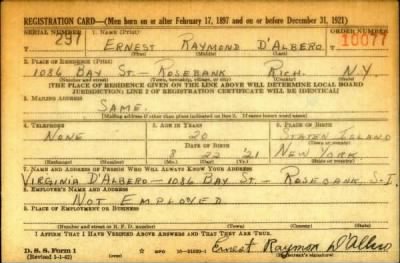 REGISTRATION CARD—(Men born on or after February 17, 1897 and on or before December 31, 1921)
SERIAL NUMBER 1. NAME (Print) ORDER NUMBER
297 ERNEST RAYMOND D'ALBERO 10077
(First) (Middle) (Last)
2. PLACE OF RESIDENCE (Print)
1086 BAY ST.- ROSEBANK RICH. N.Y.
(Number and street) (Town, township, village, or city) (County) (State)
[THE PLACE OF RESIDENCE GIVEN ON THE LINE ABOVE WILL DETERMINE LOCAL BOARD
JURISDICTION; LINE 2 OF REGISTRATION CERTIFICATE WILL BE IDENTICAL]
3. MAILING ADDRESS
SAME.
[Mailing address if other than place indicated on line 2. If same insert word same]
4. TELEPHONE 5. AGE IN YEARS 6. PLACE OF BIRTH
NONE 20 STATEN ISLAND
DATE OF BIRTH (Town or county)
8 22 '21 NEW YORK
(Exchange) (Number) (Mo.) (Day) (Yr.) (State or country)
7. NAME AND ADDRESS OF PERSON WHO WILL ALWAYS KNOW YOUR ADDRESS
VIRGINIA D'ALBERO - 1086 BAY ST.- ROSEBANK, S.I.
8. EMPLOYER'S NAME AND ADDRESS
NOT EMPLOYED
9. PLACE OF EMPLOYMENT OR BUSINESS
(Number and street or R. F. D. number) (Town) (County) (State)
I AFFIRM THAT I HAVE VERIFIED ABOVE ANSWERS AND THAT THEY ARE TRUE.
D. S. S. Form 1
(Revised 1-1-42) (over) GPO Ernest Raymond D'Albero
(Registrant's signature)